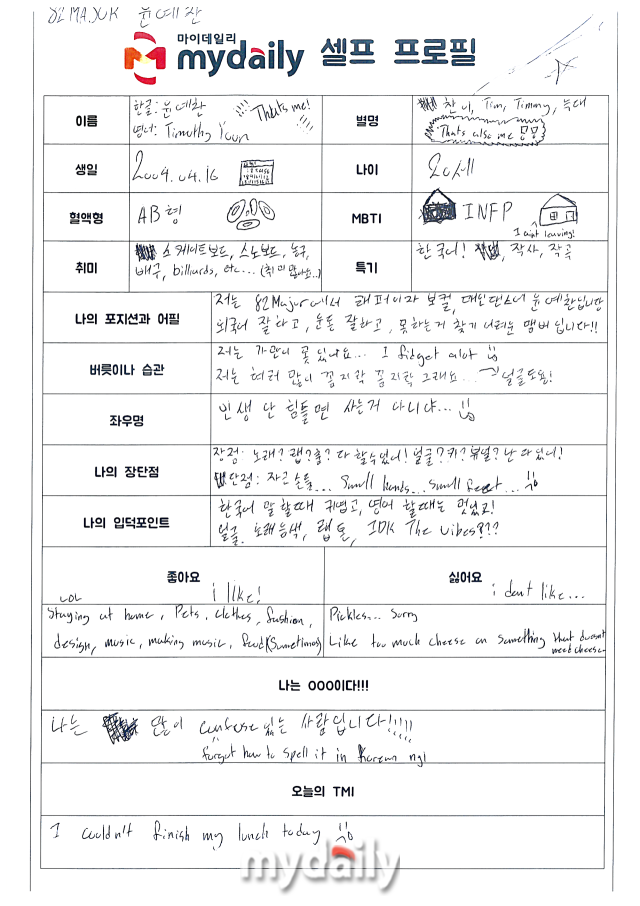 82MAJOR 윤예찬
마이데일리
mydaily 셀프 프로필
이름
한글: 윤예찬
영어: Timothy Yoon
Thats me!
별명
찬이, Tim, Timmy, 늑대
Thats also me
생일
2004.04.16
나이
20세
혈액형
AB형
MBTI
INFP
I aint leaving!
취미
스케이트보드, 스노보드, 농구,
배구, billiards, etc...
특기
한국어! 작사, 작곡
나의 포지션과 어필
저는 82Major에서 래퍼이자 보컬, 메인댄서 윤예찬입니다
외국어 잘하고, 눈돈 잘하고, 못하는거 찾기 어려운 맴버입니다!!
버릇이나 습관
저는 가만히 못있어요... I fidget alot
저는 여러 많이 꼼지락 꼼지락 그래요... 얼굴도요!
좌우명
인생 단 힘들면 사는거 아니야...
나의 장단점
장점: 노래? 랩? 춤? 다 할수있어! 얼굴? 키? 뷰얼? 난 다있어!
단점: 자근 손들... Small hands... small feet...
나의 입덕포인트
한국어 말 할때 귀엽고, 영어 할때는 멋있고!
얼굴, 노래음색, 랩 톤, IDK The vibes???
좋아요
LOL i like!
싫어요
i dont like...
Staying at home, Pets, clothes, fashion,
design, music, making music, food(Sometimes)
Pickles... Sorry
Like too much cheese on something that doesnt
need cheese
나는 OOO이다!!!
나는 많이 confuse 있는 사람입니다!!!!!
forgot how to spell it in Korean ngl
오늘의 TMI
I couldn't finish my lunch today
mydaily